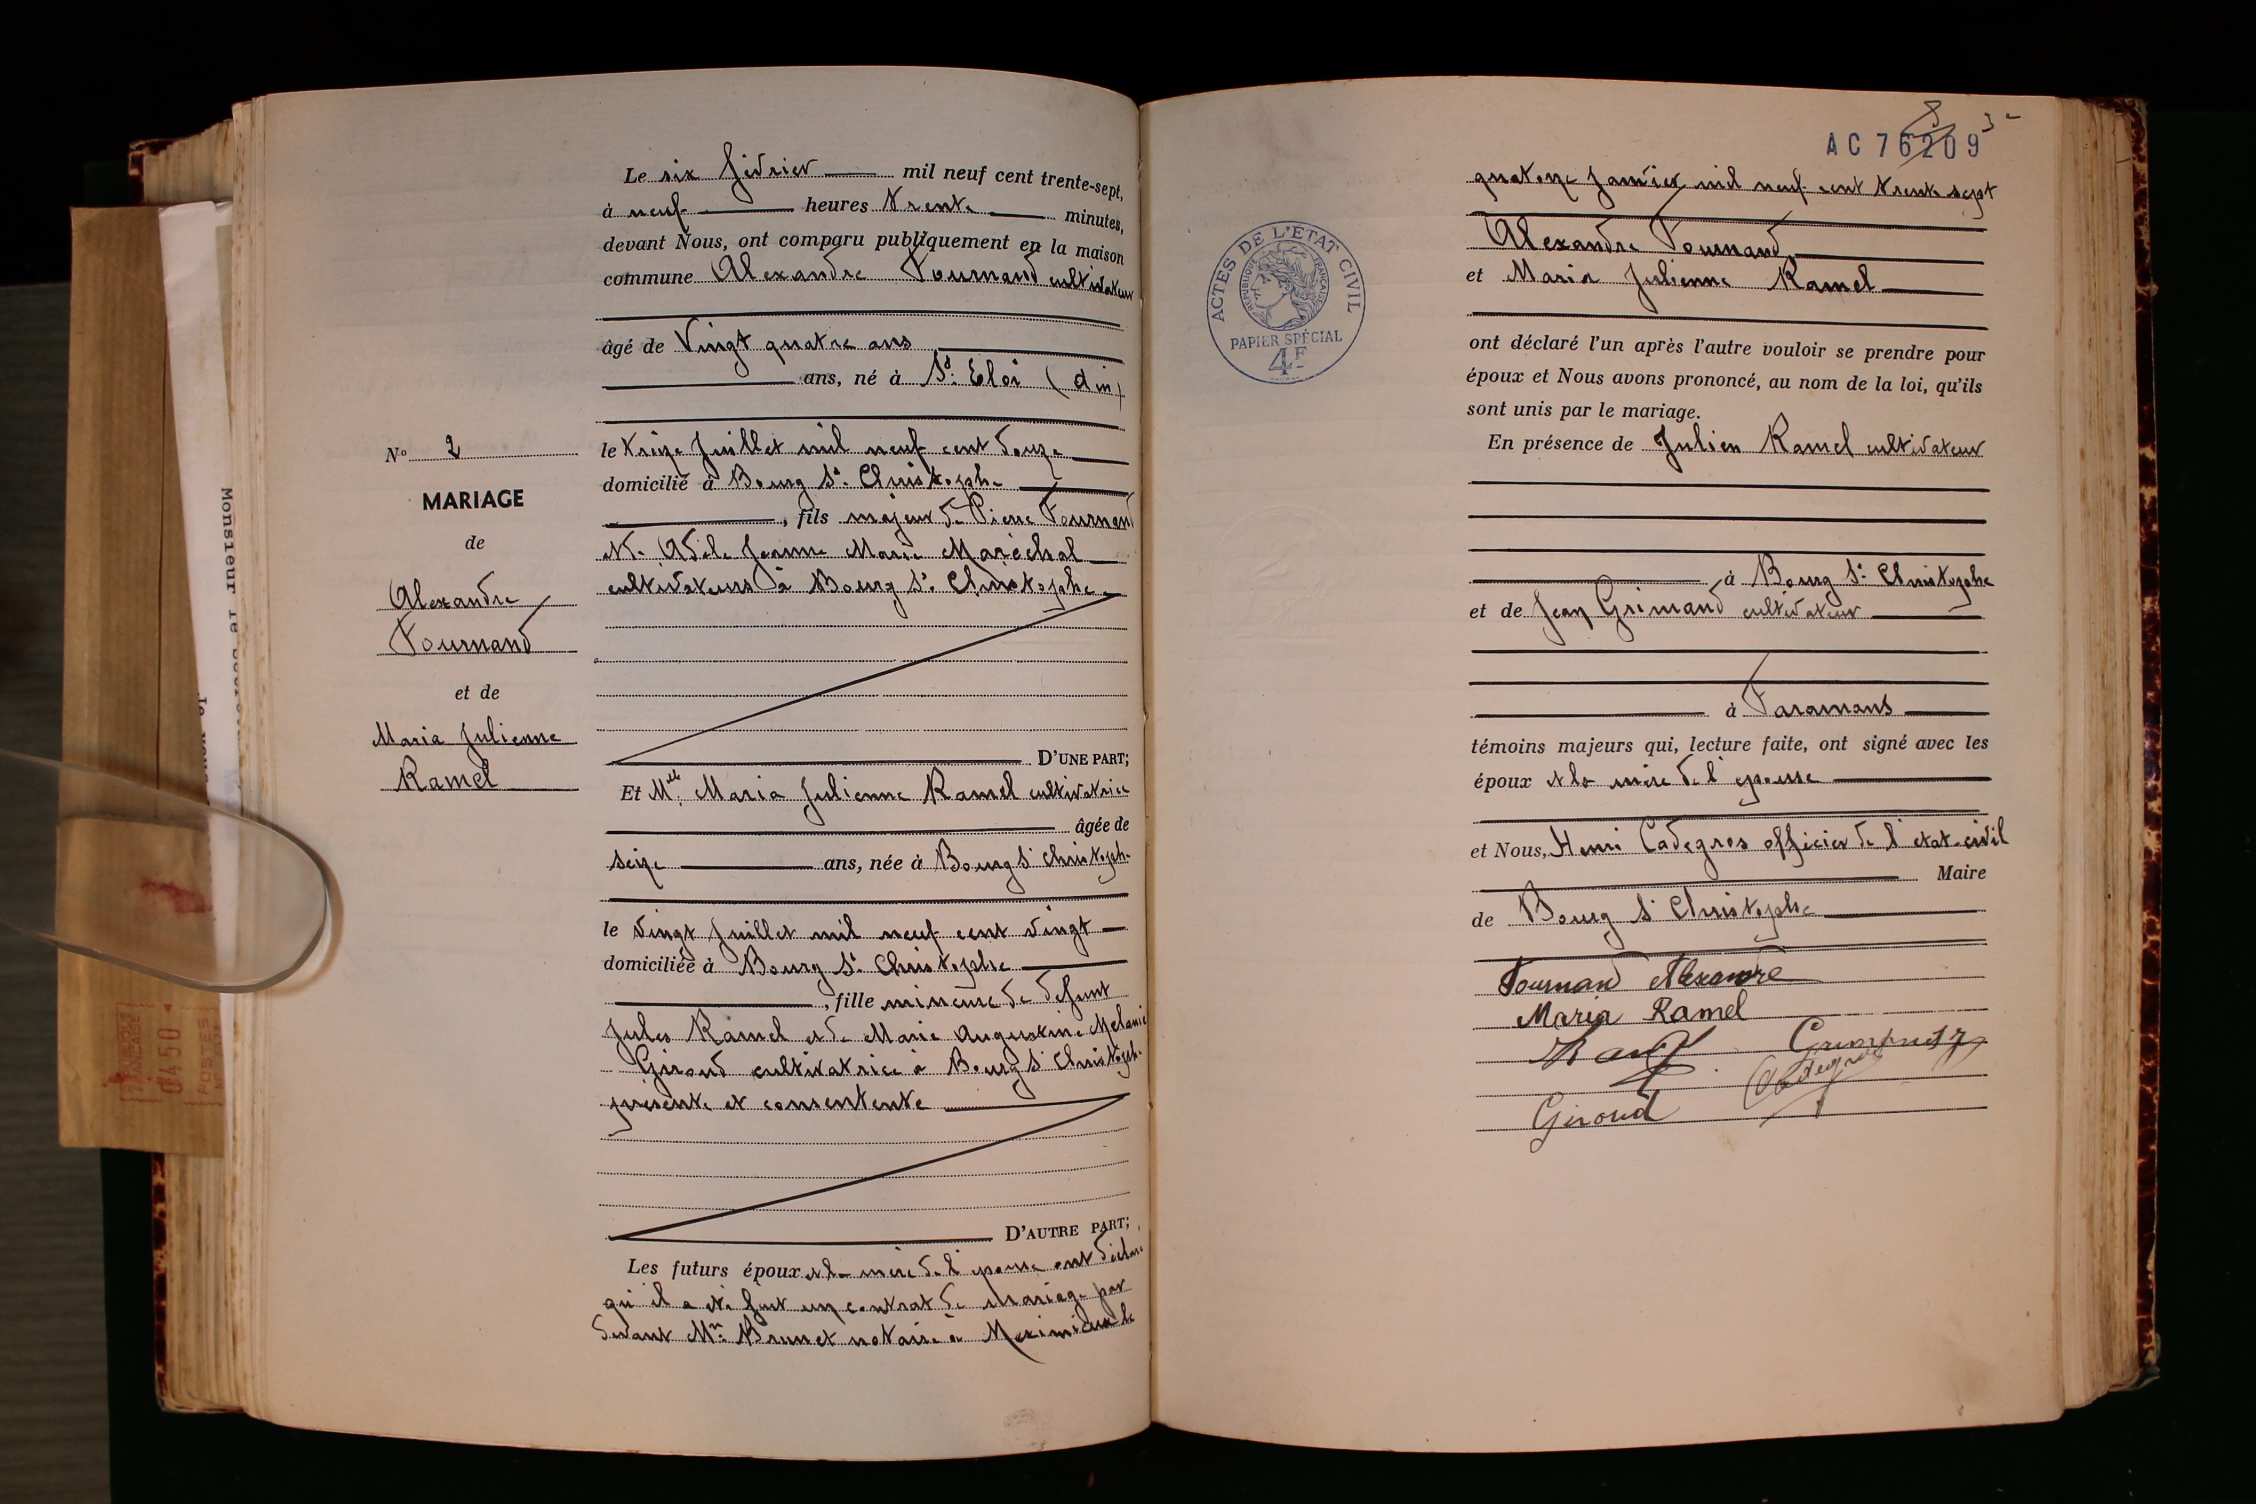 Le six février mil neuf cent trente-sept,
à neuf heures trente minutes,
devant Nous, ont comparu publiquement en la maison
commune Alexandre Fournand cultivateur
âgé de Vingt quatre ans
ans, né à St. Eloi (Ain)
le treize Juillet mil neuf cent douze
domicilié à Bourg St. Christophe
, fils majeur de Pierre Fournand
et de Adèle Jeanne Marie Maréchal
cultivateurs à Bourg St. Christophe
No 2
MARIAGE
de
Alexandre
Fournand
et de
Maria Julienne
Ramel
D'UNE PART;
Et Melle Maria Julienne Ramel cultivatrice
âgée de
seize ans, née à Bourg St Christophe
le vingt Juillet mil neuf cent vingt
domiciliée à Bourg St. Christophe
, fille mineure de defunt
Jules Ramel et de Marie Augustine Melanie
Giroud cultivatrice à Bourg St Christophe
présente et consentente
D'AUTRE PART;
Les futurs époux et la mère de l'epouse ont déclaré
qu'il a été fait un contrat de mariage par
devant Mtre Brunet notaire à Meximieux le
Monsieur le
AC 76209
quatorze Janvier mil neuf cent trente sept
Alexandre Fournand
et Maria Julienne Ramel
ont déclaré l'un après l'autre vouloir se prendre pour
époux et Nous avons prononcé, au nom de la loi, qu'ils
sont unis par le mariage.
En présence de Julien Ramel cultivateur
à Bourg St. Christophe
et de Jean Grimand cultivateur
à Faramans
témoins majeurs qui, lecture faite, ont signé avec les
époux et la mère de l'epouse
et Nous, Henri Cadegros officier de l'etat-civil
Maire
de Bourg St Christophe
Fournand Alexandre
Maria Ramel
Cadegros
Giroud
ACTES DE L'ETAT CIVIL
REPUBLIQUE FRANÇAISE
PAPIER SPÉCIAL
4F
0450
POSTES